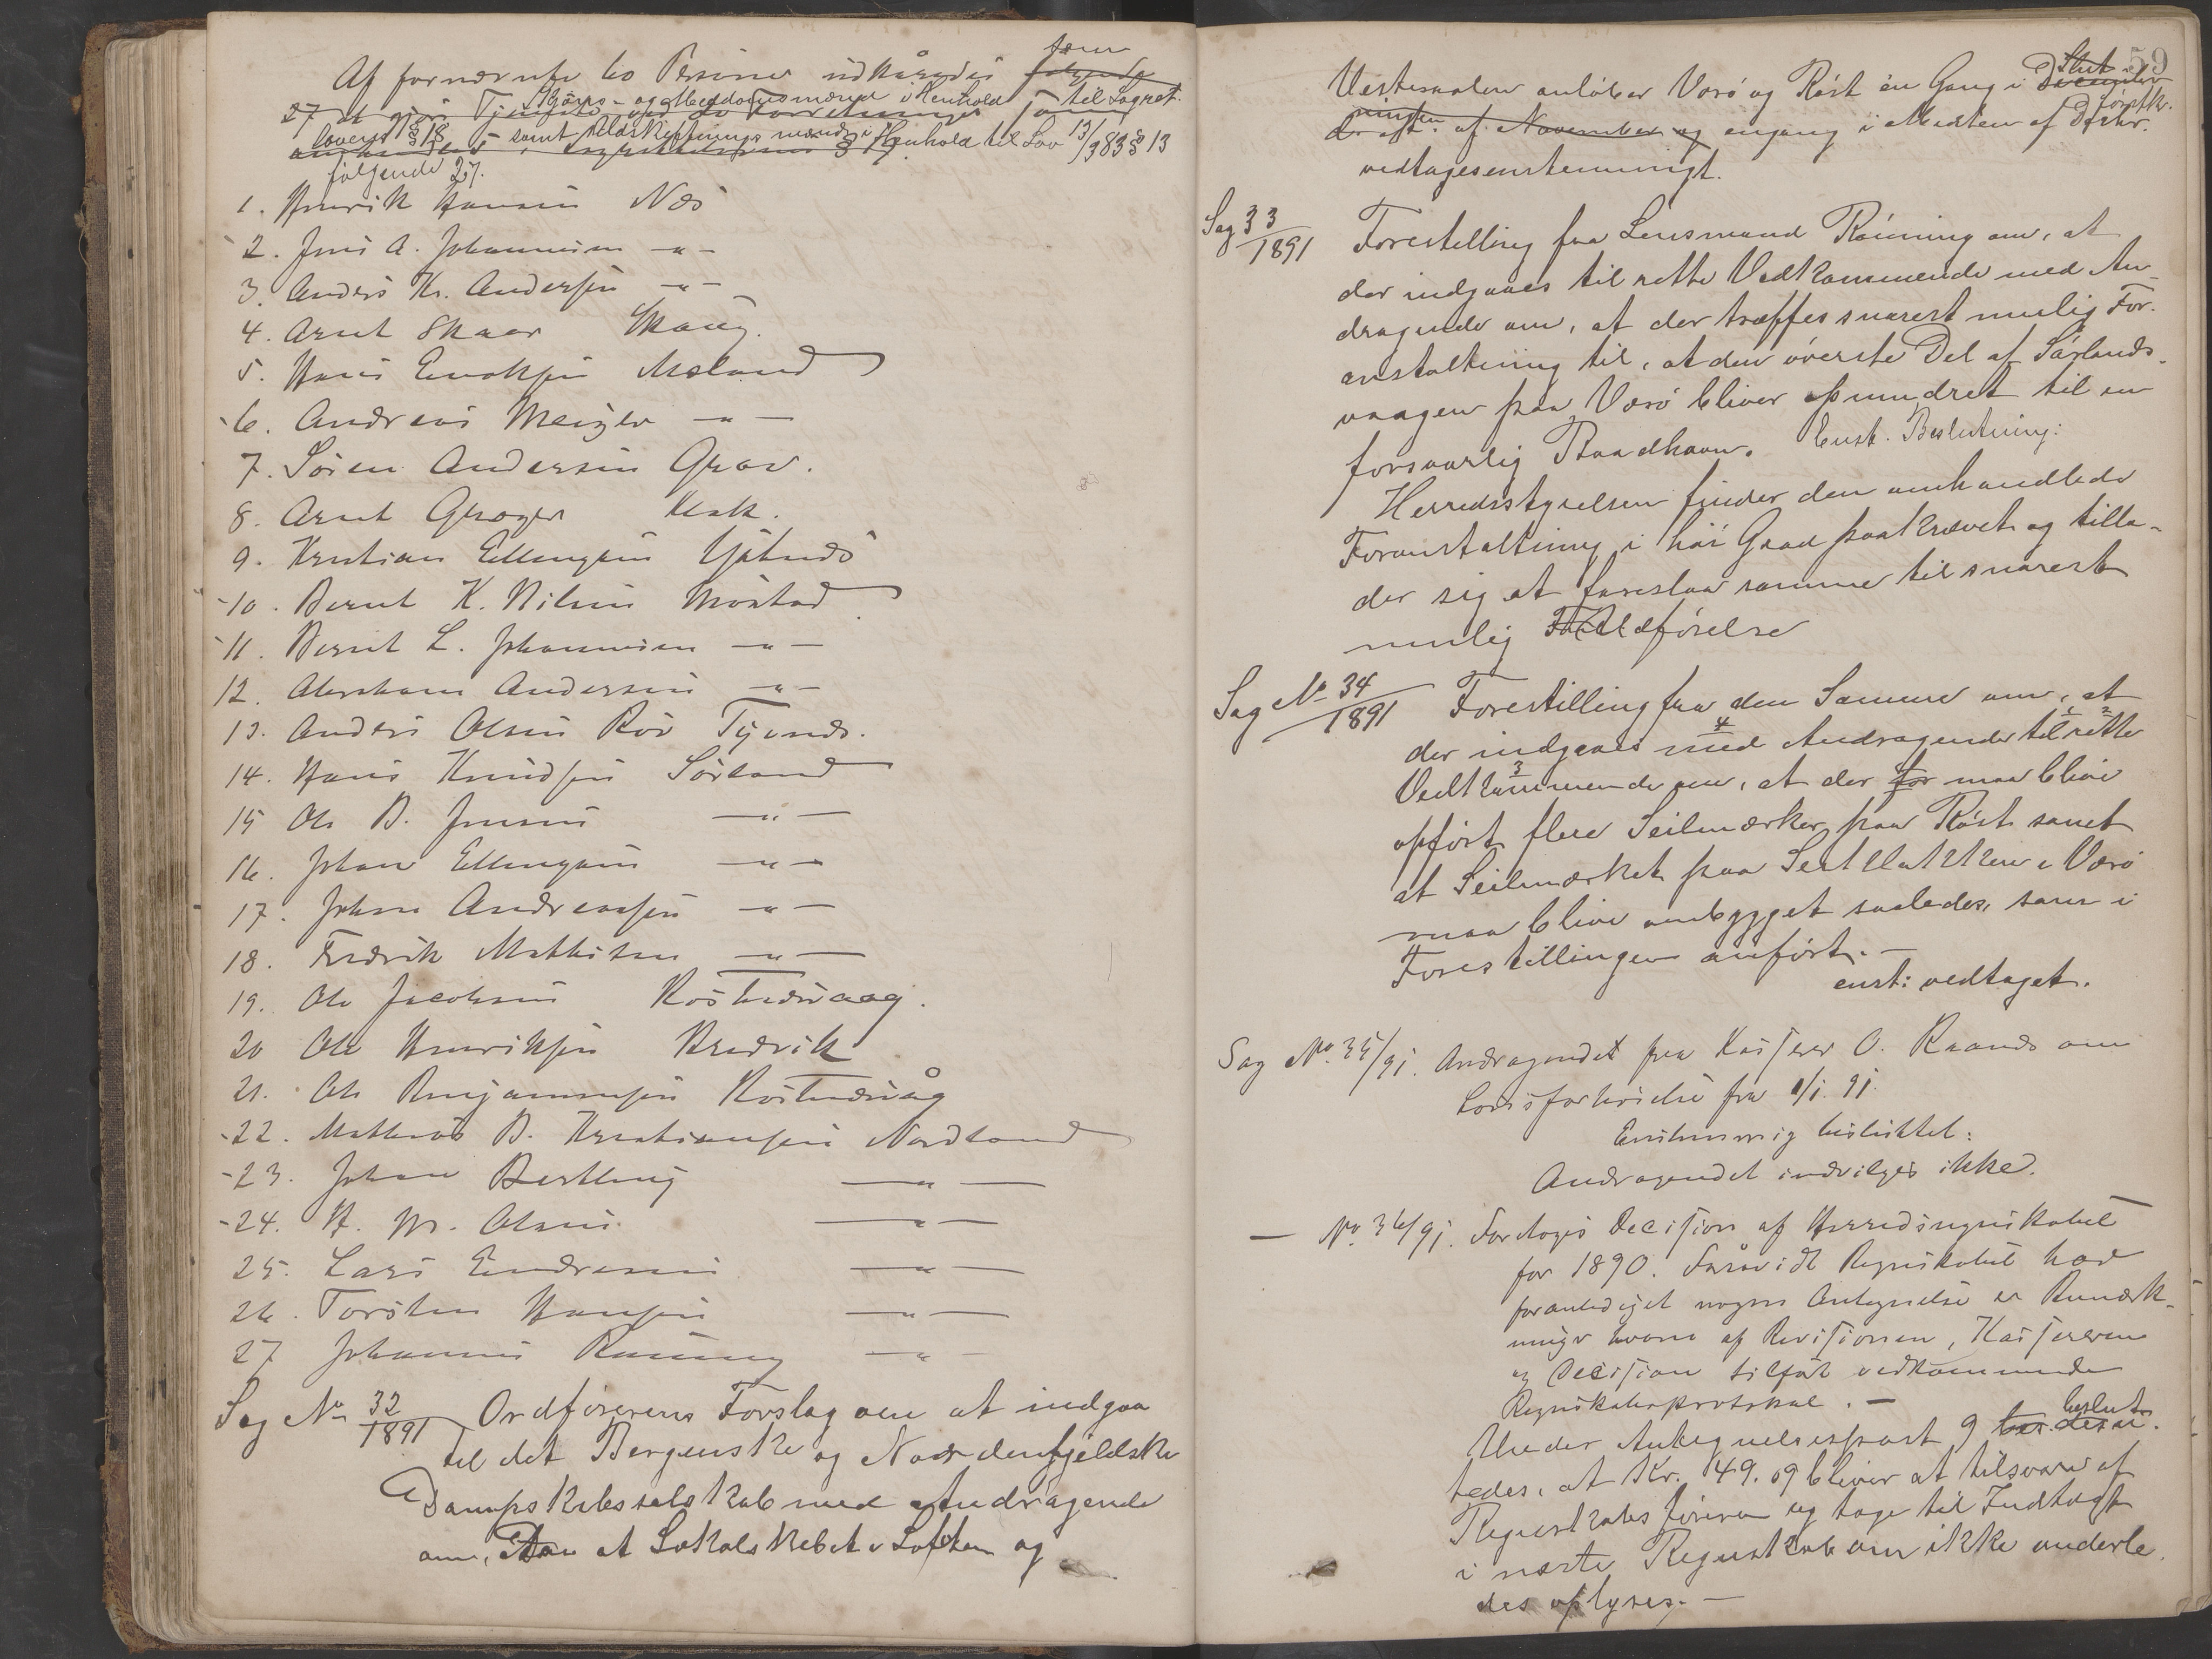 Af fornævnte 60 Personer udkåredes som
følgende
27 at gjøre Tjeneste ved de Forretninger som
Skjøns- og Meddomsmænd i Henhold til Lagret.
lovens § 18 - samt Ildskiftningsmænd i Henhold til Lov 13/9 83 § 13
følgende 27.
1. Henrik Hansen Næs
2. Jens A. Johannesen -"-
3. Anders Kr. Andersen -"-
4. Arnt Skaar
5. Hans Enoksen Mæland
6. Andreas -"-
7. Sören Andersen Grav.
8. Arnt
9. Kristian Ellingsen
10. Bernt K. Nilsen Måstad
11. Bernt L. Johannesen -"-
12. Abraham Andersen -"-
13. Anders Olsen
14. Hans Knudsen Sörland
15 Ole B. Jensen -"-
16. Johan Ellingsen -"-
17. Johan Andreassen -"-
18. Fredrik Mathisen -"-
19. Ole Jacobsen Röstnæsvaag.
20 Ole Henriksen
21. Ole Benjaminsen Röstnæsvåg
22. Mathias B. Kristiansen Nordland
23. Johan -"-
24. H. M. Olsen -"-
25. Lars Endresen -"-
26. Torsten Hansen -"-
27 Johannes Rönning -"-
Sag No 32/1891 Ordförerens Forslag om at indgaa
til det Bergenske og Nordenfjeldske
Dampskibsselskab med Andragende
om, at Lokalskibet i Lofoten og
59
Vesteraalen anløber Værö og Röst én Gang i Slut-
ningen af November og engang i Midten af Decbr.
vedtages enstemmigt.
Sag 33/1891 Forestilling fra Lensmand Rönning om, at
der indgaaes til rette Vedkommende med An-
dragende om, at der træffes snarest mulig For-
anstaltning til, at den överste Del af Sörlands-
vaagen paa Værö bliver opmudret til en
forsvarlig Baadhavn. Enst. Beslutning:
Herredsstyrelsen finder den omhandlede
Foranstaltning i höi Grad paakrævet og tilla-
der sig at foreslaa samme til snarest
mulig Udförelse
Sag No 34/1891 Forestilling fra den Samme om, at
der indgaaes med Andragende til rette
Vedkommende om, at der for maa blive
opfört flere Seilmærker paa Röst samt
at Seilmærket paa i Værö
maa blive ombygget saaledes, som i
Forestillingen anfört. -
enst: vedtaget.
Sag No. 35/91. Andragendet fra Kasserer O. om
Lönsforhöielse fra 1/1. 91.
Enstemmig besluttet:
Andragendet indvilges ikke.
- No. 36/91. Foretoges Decision af Herredsregnskabet
for 1890. Forsåvidt Regnskabet har
foranlediget nogen Antegnelse er Bemærk-
ninger herom af Revisionen, Kassereren
og Decision tilfört vedkommende
Regnskabsprotokol. -
Under Antegnelsespost 9 beslut-
tedes, at Kr. 49.09 bliver at tilsvare af
Regnskabsföreren og tage til Indtægt
i næste Regnskab om ikke anderle-
des oplyses. -